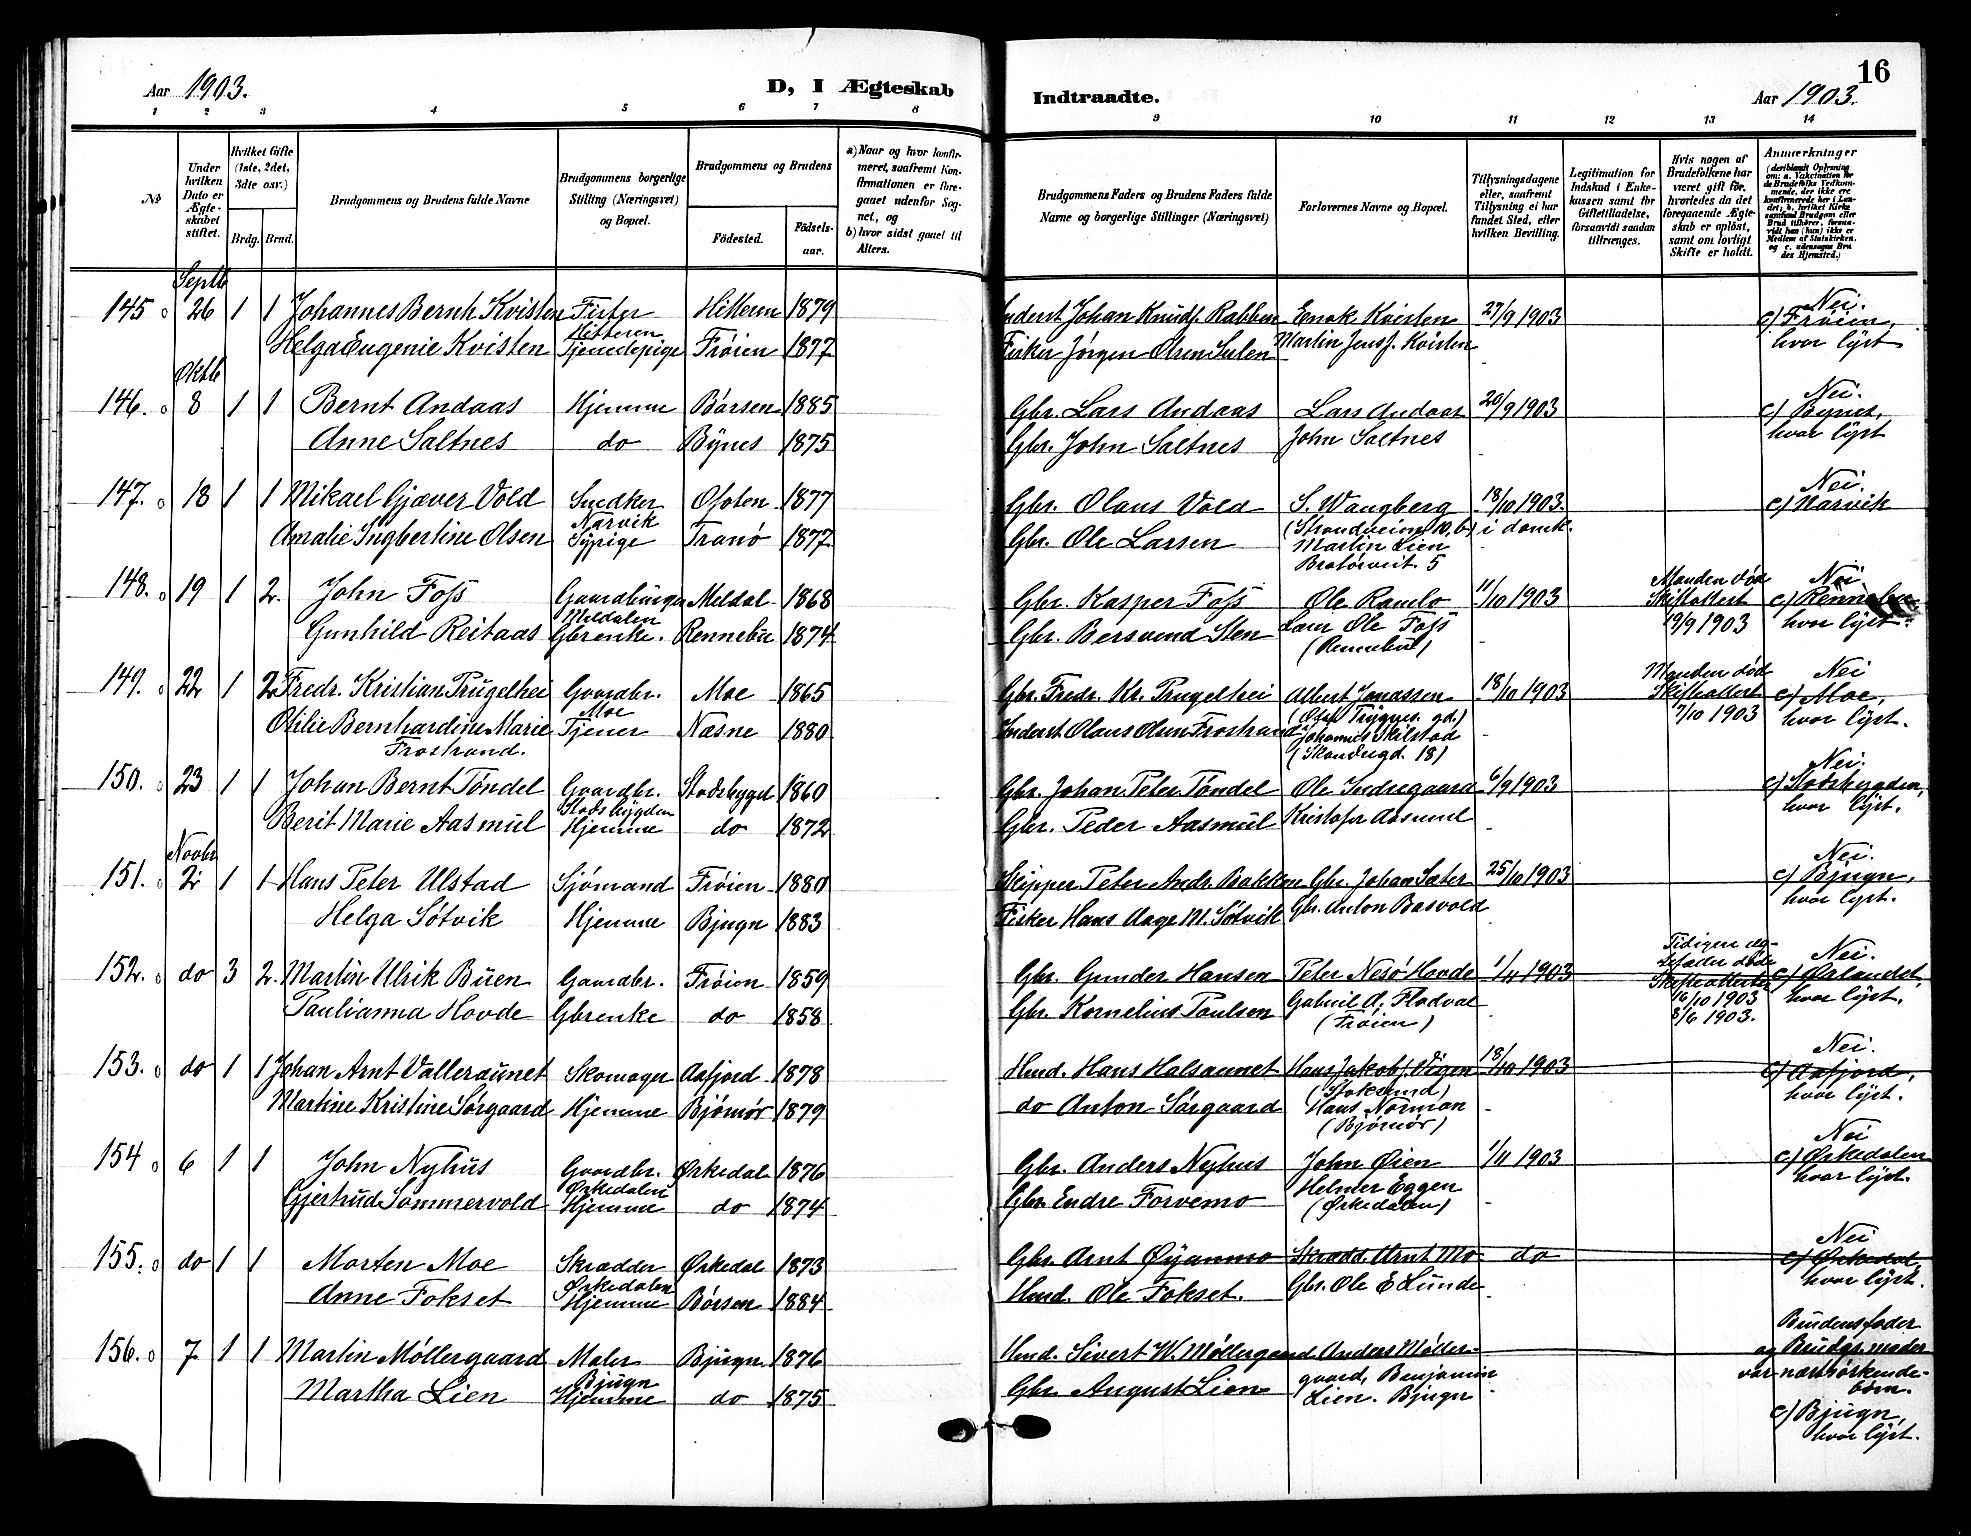 Aar 1903. D, I Ægteskab Indtraadte. Aar 1903. 16
1 2 3 4 5 6 7 8 9 10 11 12 13 14
No
Under hvilken Dato er Ægteskabet stiftet.
Hvilket Gifte (1ste, 2det, 3die osv.)
Brdg. Brud.
Brudgommens og Brudens fulde Navne
Brudgommens borgerlige Stilling (Næringsvei) og Bopæl.
Brudgommens og Brudens
Fødested. Fødselsaar.
a) Naar og hvor konfirmeret, saafremt Konfirmationen er foregaaet udenfor Sognet, og
b) hvor sidst gaaet til Alters.
Brudgommens Faders og Brudens Faders fulde Navne og borgerlige Stillinger (Næringsvei)
Forlovernes Navne og Bopæl.
Tillysningsdagene eller, saafremt Tillysning ei har fundet Sted, efter hvilken Bevilling.
Legitimation for Indskud i Enkekassen samt for Giftetilladelse, forsaavidt saadan tiltrænges.
Hvis nogen af Brudefolkene har været gift før, hvorledes da det foregaaende Ægteskab er opløst, samt om lovligt Skifte er holdt.
Anmærkninger
(deriblandt Oplysning om: a. Vakcination for de Brudefolks Vedkommende, der ikke ere konfirmerede her i Landet; b. hvilket Kirkesamfund Brudgom eller Brud tilhører, forsaavidt han (hun) ikke er Medlem af Statskirken. og c. udensogns Brudes Hjemsted.)
Septb
145 26 1 1 Johannes Bernh Kvisten Fisker Hitteren 1879 Inderst Johan Knuds. Rabben Enok Kvisten 27/9 1903 Nei.
Hitteren c) Frøien,
Helga Eugenie Kvisten Tjenestepige Frøien 1877 Fisker Jørgen Olsen Sulen Martin Jensf. Kvisten hvor lyst
Oktb
146. 8 1 1 Bernt Andaas Hjemme Børsen 1885 Gbr. Lars Andaas Lars Andaas 20/9 1903 Nei.
c) Bynes,
Anne Saltnes do Bynes 1875 Gbr. John Saltnes John Saltnes hvor lyst
147. 18 1 1 Mikael Gjæver Vold Snedker Ofoten 1877 Gbr. Olaus Vold S. Wangberg 18/10 1903. Nei.
Narvik (Strandveien 10, b) i domk. c) Narvik
Amalie Ingbertine Olsen Sypige Tranø 1877 Gbr. Ole Larsen Martin Lien
Bratørveit. 5
148. 19 1 2. John Foss Gaardbruger Meldal 1868 Gbr. Kasper Foss Ole Ramlo 11/10 1903 Manden død Nei
Meldalen Skifteattest c) Rennebu
Gunhild Reitaas Gbrenke. Rennebu 1874 Gbr. Bersvend Sten Ole Foss 19/9 1903 hvor lyst.
(Rennebu)
149. 22 1 2. Fredr. Kristian Trugelhei Gaardbr. Moe 1865 Gbr. Fredr. Kr. Trugelhei Albert Jonassen 18/10 1903 Manden død Nei
Moe Skifteattest c) Moe,
Otilie Bernhardine Marie Tjener Næsne 1880 Inderst Olaus Olsen Frostrand Johannes Skilstad 7/10 1903 hvor lyst.
Frostrand.
150. 23 1 1 Johan Bernt Tøndel Gaardbr. Stadsbygd 1860 Gbr. Johan Peter Tøndel Ole Indregaard 6/9 1903 Nei.
Stadsbygden c) Stadsbygden,
Berit Marie Aasmul Hjemme do 1872 Gbr. Peder Aasmul Kristofer Aasmul hvor lyst.
Novbr
151. 2 1 1 Hans Peter Ulstad Sjømand Frøien 1880 Skipper Peter Andr. Bakken Gbr. Johan Sæter 25/10 1903 Nei.
c) Bjugn,
Helga Søtvik Hjemme Bjugn 1883 Fisker Hans Aage M. Søtvik Gbr. Anton Basvold hvor lyst.
152. do 3 2. Martin Ulrik Buen Gaardbr. Frøien 1859 Gbr. Gunder Hansen Peter Nesø Hovde 1/11 1903 Tidligere ægtefæller døde Nei.
Skifteattester c) Ørlandet,
Paulianna Hovde Gbrenke do 1858 Gbr. Kornelius Paulsen Gabriel A. Fladval 16/10 1903 hvor lyst.
(Frøien) 3/6 1903.
153. do 1 1 Johan Arnt Valleraunet Skomager Aafjord 1878 Hmd. Hans Halsaunet Hans Jakobs. Vigen 18/10 1903 Nei.
(Stoksund) c) Aafjord,
Martine Kristine Sørgaard Hjemme Bjørnør 1879 do Anton Sørgaard Hans Norman hvor lyst.
(Bjørnør)
154 6 1 1 John Nyhus Gaardbr. Ørkedal 1876 Gbr. Anders Nyhus John Øien 1/11 1903 Nei
Ørkedalen Helmer Eggen c) Ørkedalen
Gjertrud Sommervold Hjemme do 1874 Gbr. Endre Forvemo (Ørkedalen) hvor lyst.
155. do 1 1 Morten Moe Skrædder Ørkedal 1873 Gbr. Arnt Øyanmo Skrædd. Arnt Mo do Nei
Ørkedalen c) Ørkedal,
Anne Fokset Hjemme Børsen 1884 Hmd. Ole Fokset. Gbr. Ole E Lunde hvor lyst.
156. 7 1 1 Martin Møllergaard Maler Bjugn 1876 Hmd. Sivert W. Møllergaard Anders Møllergaard, Benjamin Brudens fader
og Brudgs. moder
Bjugn var næstsøskende-
Martha Lien Hjemme do 1875 Gbr. August Lien Lien. Bjugn børn.
c) Bjugn,
hvor lyst.